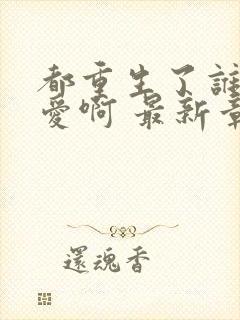 都重生了誰
愛啊 最新章
還魂香